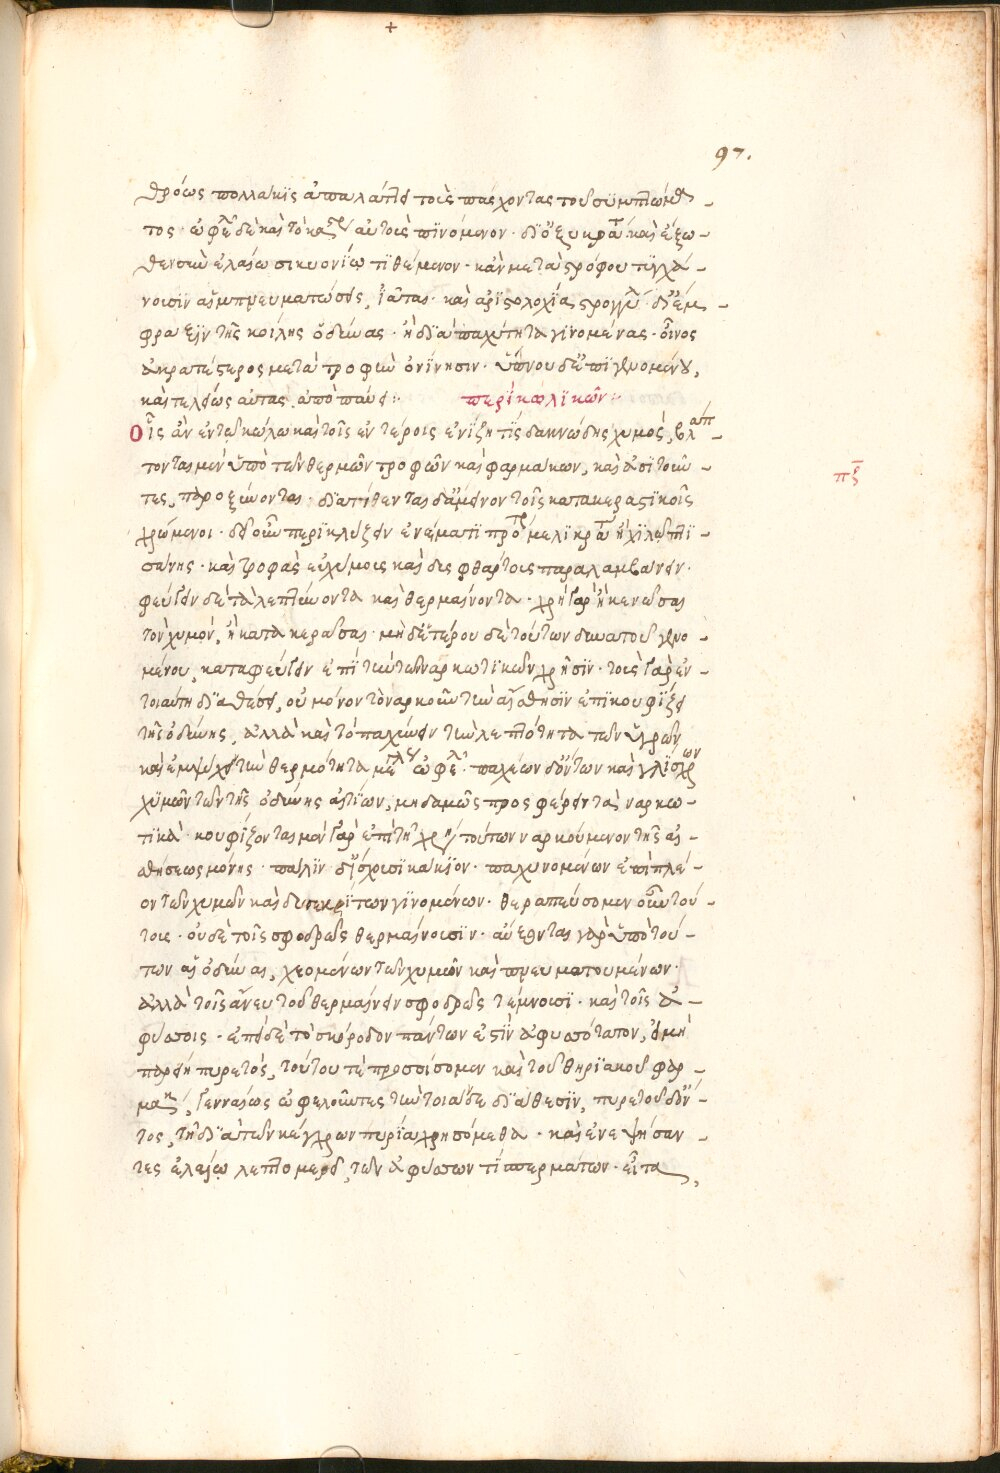 +
97.
θρόως πολλακὶς ἀπαλάττει τοὺς πάσχοντας τοῦ συμπτώμα-
τος· ὠφελεῖ δὲ καὶ τὸ αὐτοῖς πινόμενον· δι' ὀξυκράτου καὶ ἔξω-
θεν σὺν ἐλαίῳ σικυονίῳ τιθέμενον· κἂν μετὰ στρόφου τυγχά-
νοισιν αἱ ἐμπνευματώσεις, ἰᾶται· καὶ ἀριστολοχία στρογγύλη δι' ἔμ-
φραξιν τῆς κοίλης ὀδύνας· ἢ διὰ παχύτητα γινομένας· οἶνος
ἀκρατέστερος μετὰ τροφὴν ὀνίνησιν· ὕπνου δ' ἐπιγενομένου,
καὶ τελείως αὐτὰς ἀπόπαύει:· περὶ κωλικῶν:·
Οἷς ἂν ἐν τῷ κώλω καὶ τοῖς ἐντέροις ἐνίζη τίς δακνώδης χυμός, βλαπ-
τονται μὲν ὑπὸ τῶν θερμῶν τροφῶν καὶ φαρμάκων, καὶ ἀσιτοῦν-
τες, παροξύνονται· διατίθενται δ' ἄμεινον τοῖς κατακεραστικοῖς
χρώμενοι· δεῖ οὖν περικλύζειν ἐνέματι πρότερον μελικράτου ἢ χιλῶ πτι-
σάνης· καὶ τροφὰς εὐχύμοις καὶ δυσφθάρτοις παραλαμβάνειν·
φεύγειν δὲ τὰ λεπτύνοντα καὶ θερμαίνοντα· χρὴ γὰρ ἢ κενῶσαι
τὸν χυμόν, ἢ κατακερᾶσαι· μηδετέρου δὲ τούτων δυνατοῦ γενο-
μένου, καταφεύγειν ἐπὶ τὴν τῶν ναρκωτικῶν χρῆσιν· τοὺς γὰρ ἐν
τοιαύτη διαθέσει, οὐ μόνον τὸ ναρκοῦν τὴν αἴσθησιν ἐπικουφίζει
τῆς ὀδύνης, ἀλλὰ καὶ τὸ παχύνειν τὴν λεπτότητα τῶν ὑγρῶν
καὶ ἐμψύχειν τὴν θερμότητα μεγάλως ὠφελεῖ· παχέων δ' ὄντων καὶ γλίσχρων
χυμῶν τῶν τῆς ὀδύνης αἰτίων, μηδαμῶς προσφέρειν τὰ ναρκω-
τικὰ· κουφίζονται μὲν γὰρ ἐπὶ τῆ χρήσει τούτων ναρκούμενον τῆς αἰ-
σθήσεως μόνης· πάλιν δ' ἴσχουσι κάκιον· παχυνομένων ἐπιπλέ-
ον τῶν χυμῶν καὶ δυσεκκρίτων γινομένων· θεραπεύσομεν οὖν τού-
τοις· οὐδὲ τοῖς σφοδρῶς θερμαίνοισιν· αὔξονται γὰρ ὑπὸ τού-
των αἱ ὀδύναι, χεομένων τῶν χυμῶν καὶ πνευματουμένων·
ἀλλὰ τοῖς ἄνευ τοῦ θερμαίνειν σφοδρῶς τέμνοισι· καὶ τοῖς ἀ-
φύσοις· ἐπεὶ δὲ τὸ σκόροδον πάντων ἐστὶν ἀφυσότατον, εἰ μὴ
παρείη πυρετός, τούτου τὲ προσοίσομεν καὶ τοῦ θηριακοῦ φαρ-
μάκου, γενναίως ὠφελοῦντες τὴν τοιαύδε διάθεσιν, πυρετοῦ δ' ὄν-
τος, τῆ διὰ τῶν κέγχρων πυρία χρησόμεθα· καὶ ἐνεψήσαν-
τες ἐλαίῳ λεπτομερεῖ, τῶν ἀφύσων τι σπερμάτων· εἶτα,
πξ